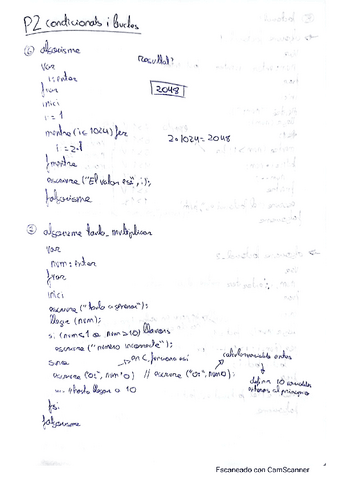 P2 condicionals i bucles
① algorisme
var
i: enter
fvar
inici
i = 1
mentre (i ≤ 1024) fer
i = 2·i
fmentre
escriure ("El valor és", i);
falgorisme
Resultat?
2048
2·1024 = 2048
② algorisme taula_multiplicar
var
num: enter
fvar
inici
escriure ("taula a generar");
llegir (num);
si (num ≤ 1 o num ≥ 10) llavors
escriure ("número incorrecte");
sino
escriure ("0:", num*0) // escriure ("0:", num0);
fins llegar a 10
fsi
falgorisme
definir 10 variables
enteres al principi
Escaneado con CamScanner